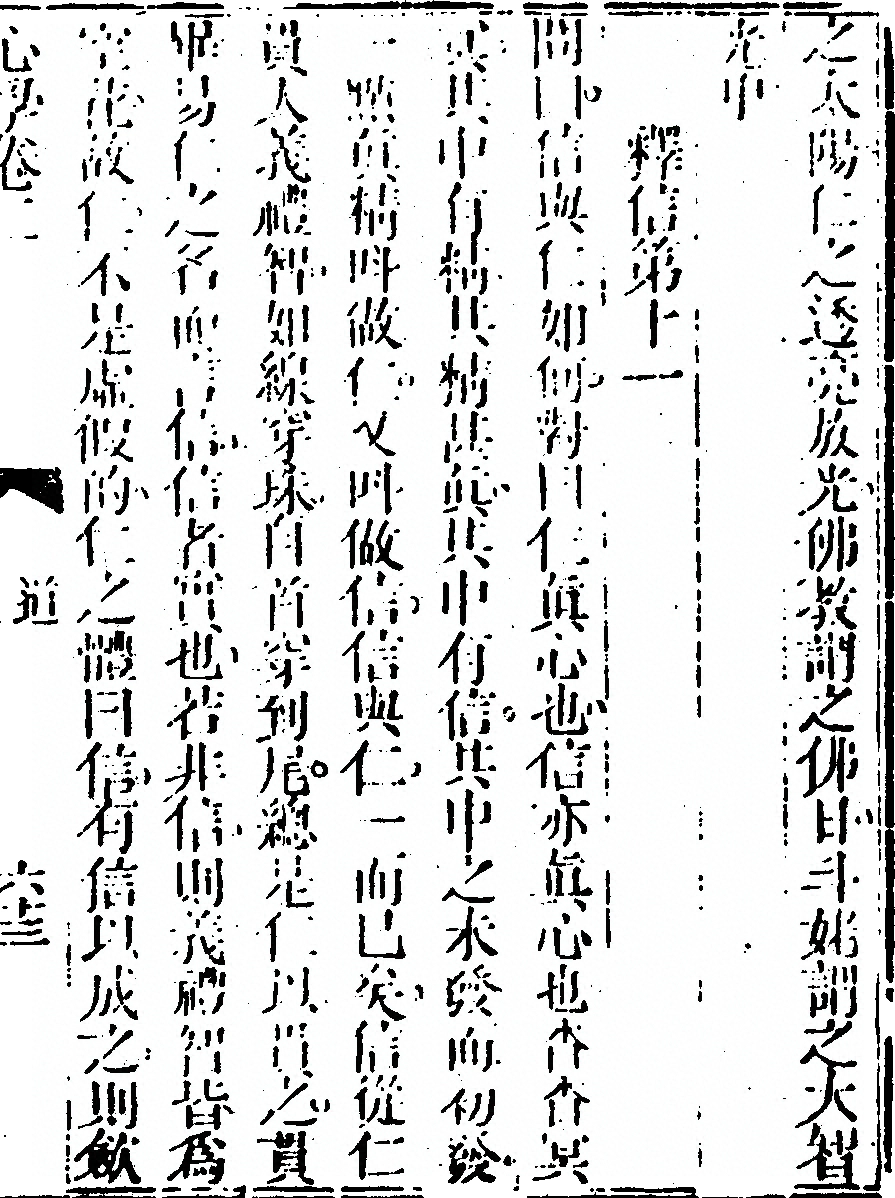 之太陽仁之透亮放光佛教謂之佛日斗姥謂之天智
光中
釋信第十一
問曰信與仁如何對曰仁眞心也信亦眞心也杳杳冥
冥其中有精其精甚眞其中有信其中之未發而初發
一點眞精叫做仁又叫做信信與仁一而已矣信從仁
貫入義禮智如線穿珠自首穿到尾總是仁以貫之貫
畢易仁之名而言信信者實也若非信則義禮智皆爲
空花故仁不是虛假的仁之體曰信有信以成之則欽
心學卷二
道
六十三